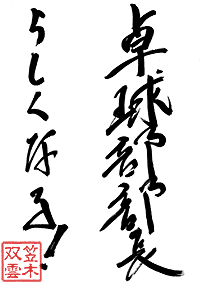 卓球部部長
よろしくなる!
笠木
双雲